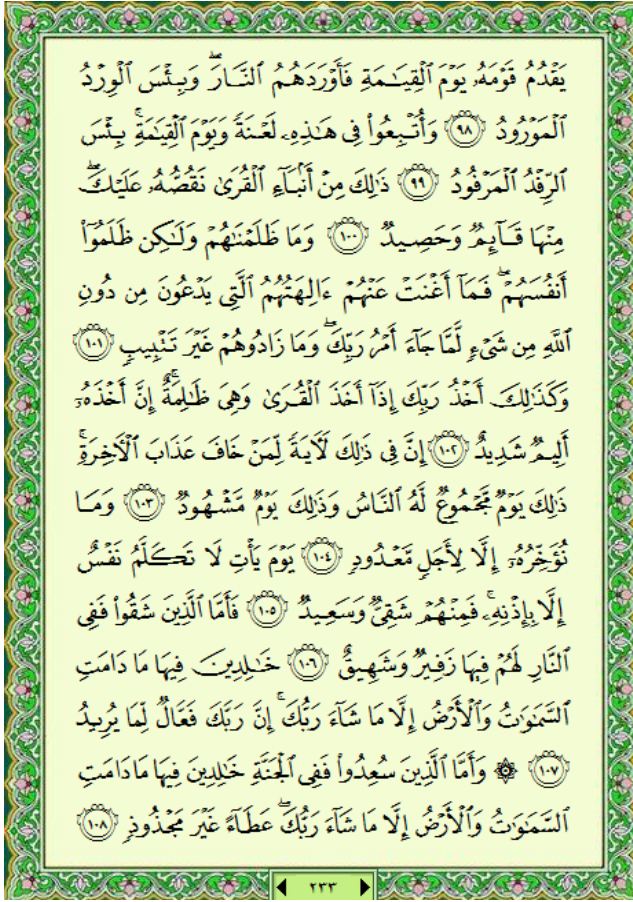 يَقْدُمُ قَوْمَهُۥ يَوْمَ ٱلْقِيَـٰمَةِ فَأَوْرَدَهُمُ ٱلنَّارَ ۖ وَبِئْسَ ٱلْوِرْدُ
ٱلْمَوْرُودُ ﴿٩٨﴾ وَأُتْبِعُوا۟ فِى هَـٰذِهِۦ لَعْنَةً وَيَوْمَ ٱلْقِيَـٰمَةِ ۚ بِئْسَ
ٱلرِّفْدُ ٱلْمَرْفُودُ ﴿٩٩﴾ ذَٰلِكَ مِنْ أَنۢبَآءِ ٱلْقُرَىٰ نَقُصُّهُۥ عَلَيْكَ ۖ
مِنْهَا قَآئِمٌ وَحَصِيدٌ ﴿١٠٠﴾ وَمَا ظَلَمْنَـٰهُمْ وَلَـٰكِن ظَلَمُوٓا۟
أَنفُسَهُمْ ۖ فَمَآ أَغْنَتْ عَنْهُمْ ءَالِهَتُهُمُ ٱلَّتِى يَدْعُونَ مِن دُونِ
ٱللَّهِ مِن شَىْءٍ لَّمَّا جَآءَ أَمْرُ رَبِّكَ ۖ وَمَا زَادُوهُمْ غَيْرَ تَتْبِيبٍ ﴿١٠١﴾
وَكَذَٰلِكَ أَخْذُ رَبِّكَ إِذَآ أَخَذَ ٱلْقُرَىٰ وَهِىَ ظَـٰلِمَةٌ ۚ إِنَّ أَخْذَهُۥٓ
أَلِيمٌ شَدِيدٌ ﴿١٠٢﴾ إِنَّ فِى ذَٰلِكَ لَـَٔايَةً لِّمَنْ خَافَ عَذَابَ ٱلْـَٔاخِرَةِ ۚ
ذَٰلِكَ يَوْمٌ مَّجْمُوعٌ لَّهُ ٱلنَّاسُ وَذَٰلِكَ يَوْمٌ مَّشْهُودٌ ﴿١٠٣﴾ وَمَا
نُؤَخِّرُهُۥٓ إِلَّا لِأَجَلٍ مَّعْدُودٍ ﴿١٠٤﴾ يَوْمَ يَأْتِ لَا تَكَلَّمُ نَفْسٌ
إِلَّا بِإِذْنِهِۦ ۚ فَمِنْهُمْ شَقِىٌّ وَسَعِيدٌ ﴿١٠٥﴾ فَأَمَّا ٱلَّذِينَ شَقُوا۟ فَفِى
ٱلنَّارِ لَهُمْ فِيهَا زَفِيرٌ وَشَهِيقٌ ﴿١٠٦﴾ خَـٰلِدِينَ فِيهَا مَا دَامَتِ
ٱلسَّمَـٰوَٰتُ وَٱلْأَرْضُ إِلَّا مَا شَآءَ رَبُّكَ ۚ إِنَّ رَبَّكَ فَعَّالٌ لِّمَا يُرِيدُ
﴿١٠٧﴾ ۞ وَأَمَّا ٱلَّذِينَ سُعِدُوا۟ فَفِى ٱلْجَنَّةِ خَـٰلِدِينَ فِيهَا مَا دَامَتِ
ٱلسَّمَـٰوَٰتُ وَٱلْأَرْضُ إِلَّا مَا شَآءَ رَبُّكَ ۖ عَطَآءً غَيْرَ مَجْذُوذٍ ﴿١٠٨﴾
٢٣٣